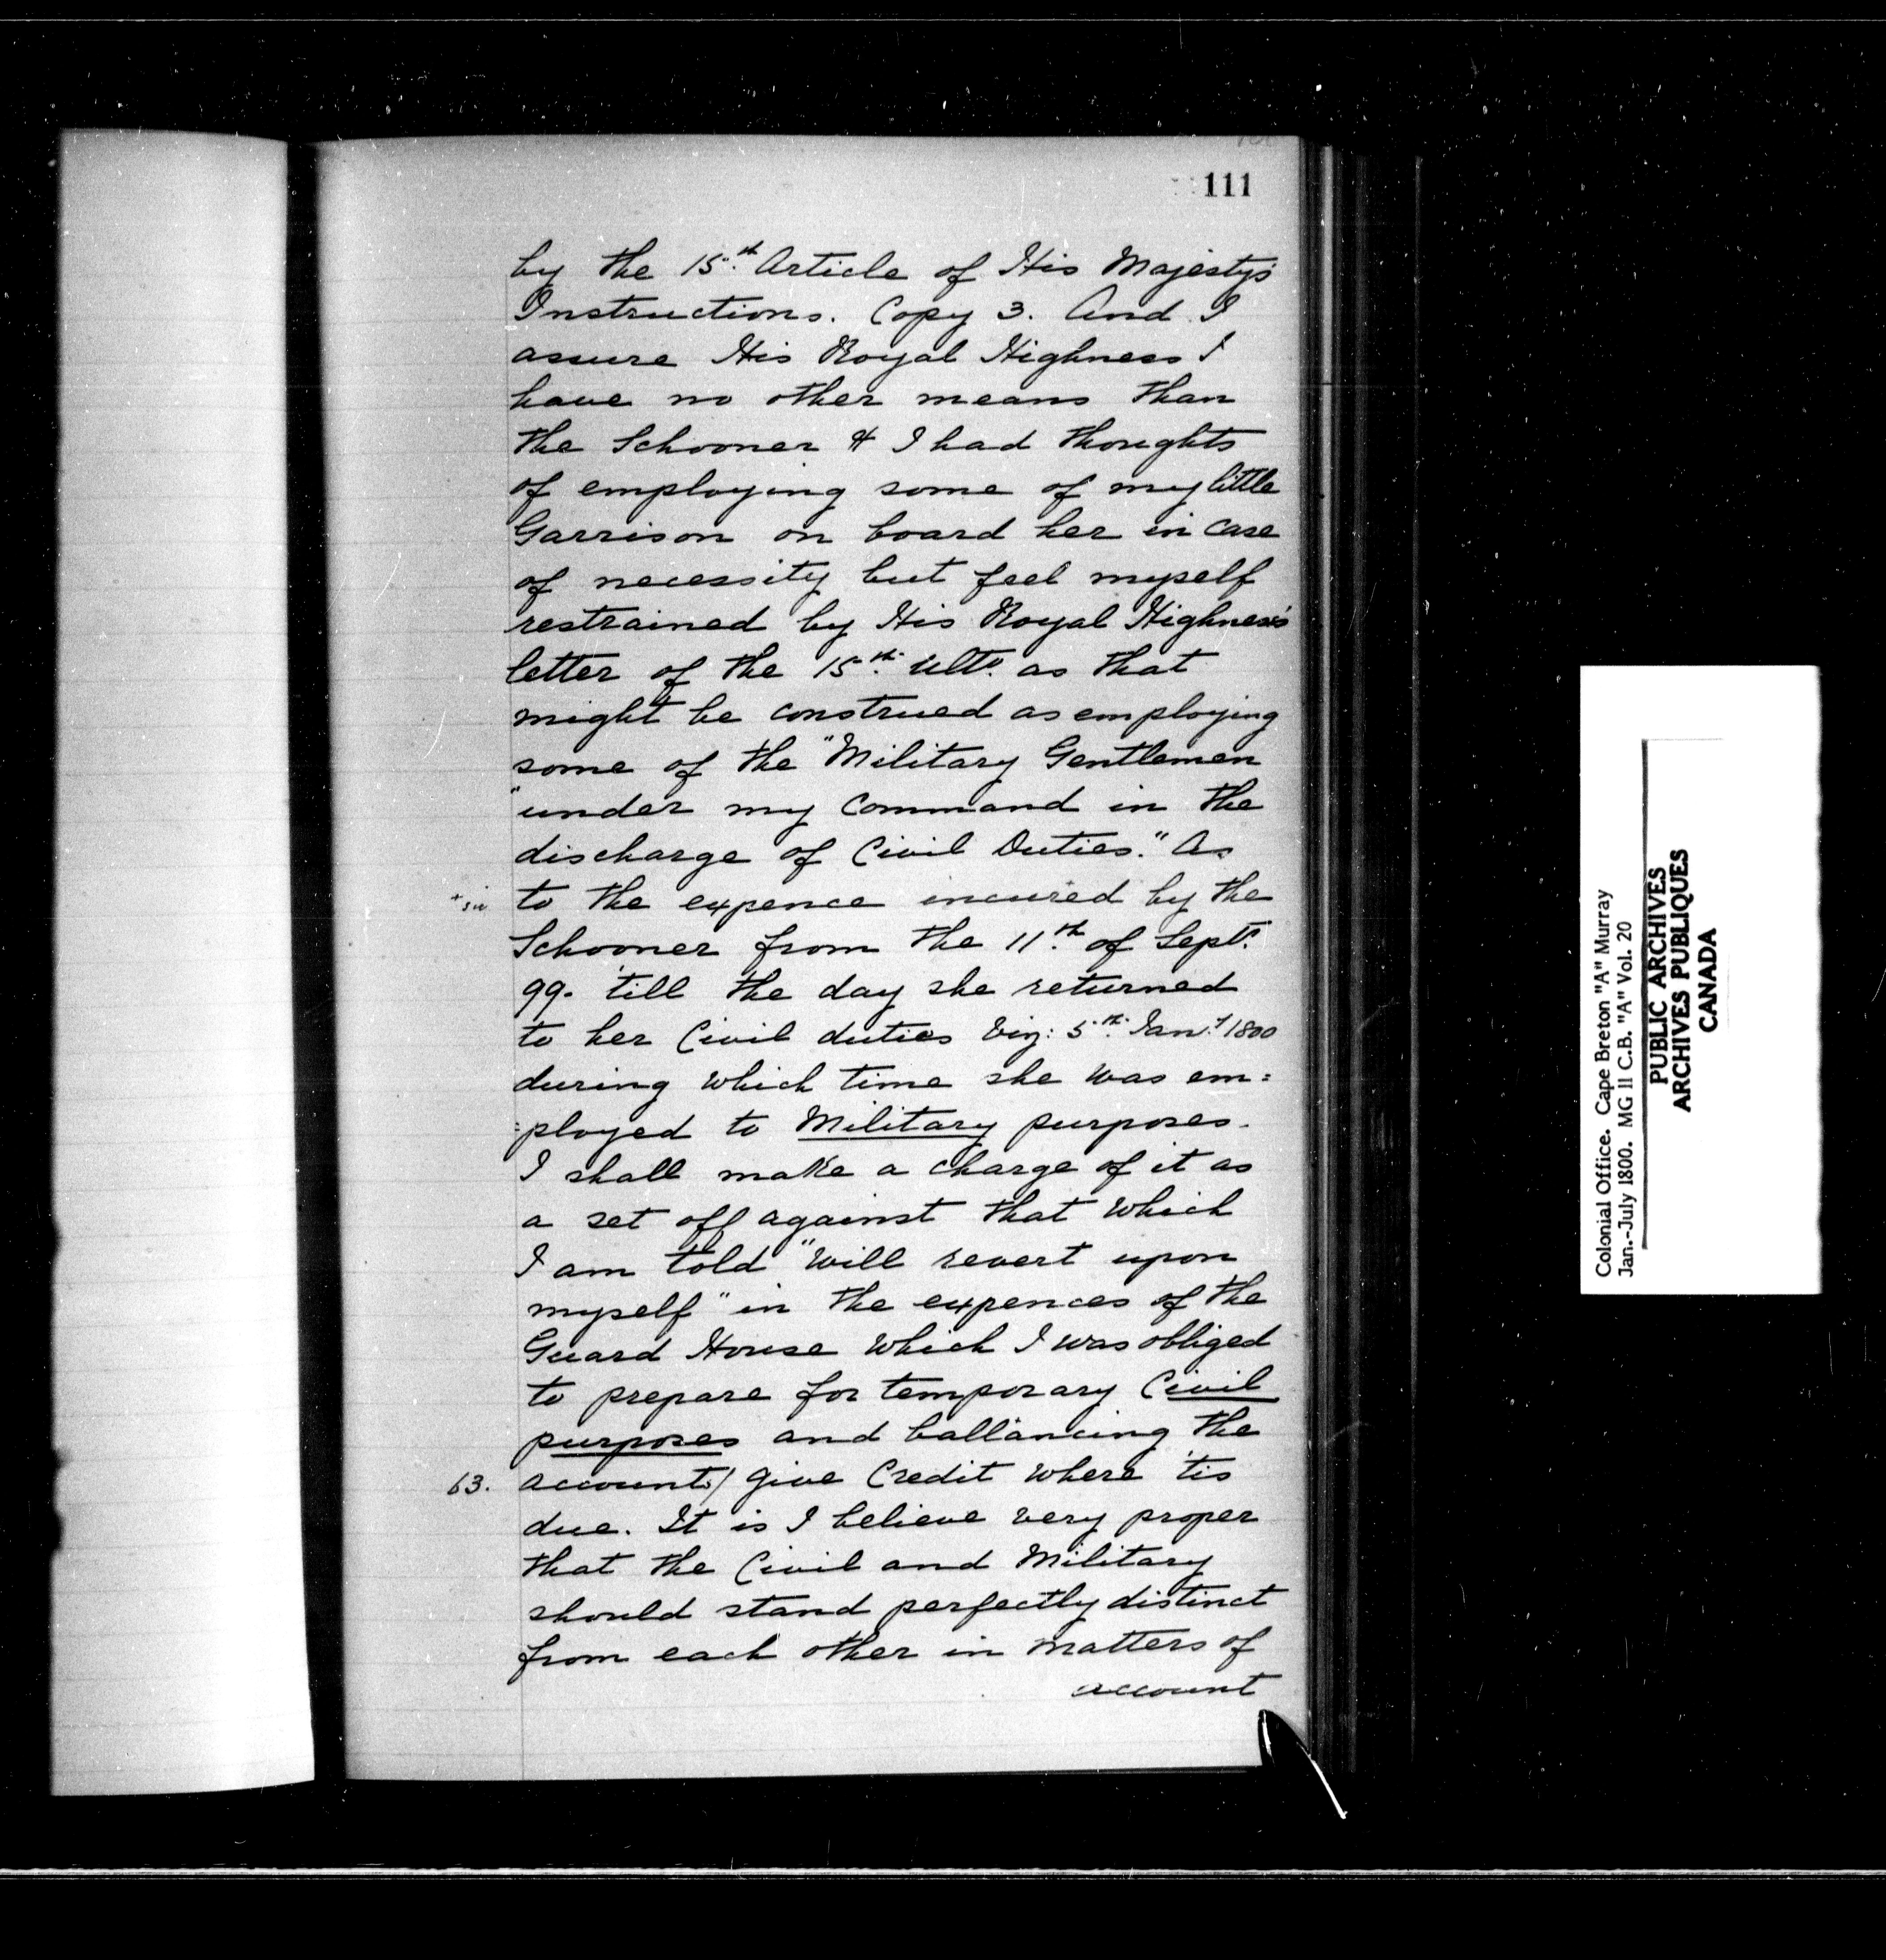 111
by the 15th. Article of His Majesty's
Instructions. Copy 3. And I
assure His Royal Highness I
have no other means than
the Schooner & I had thoughts
of employing some of my little
Garrison on board her in case
of necessity but feel myself
restrained by His Royal Highness's
letter of the 15th. Ulto. as that
might be construed as employing
some of the "Military Gentlemen
"under my Command in the
discharge of Civil Duties." As
+ sic to the expence incured + by the
Schooner from the 11th. of Septr.
99. 'till the day she returned
to her Civil duties Viz: 5th. Jany 1800
during which time she was em=
=ployed to Military purposes.
I shall make a charge of it as
a set off against that which
I am told "will revert upon
myself" in the expences of the
Guard House which I was obliged
to prepare for temporary Civil
purposes and ballancing the
63. accounts/ give Credit where 'tis
due. It is I believe very proper
that the Civil and Military
should stand perfectly distinct
from each other in matters of
account
Colonial Office. Cape Breton "A" Murray
Jan.-July 1800. MG 11 C.B. "A" Vol. 20
PUBLIC ARCHIVES
ARCHIVES PUBLIQUES
CANADA